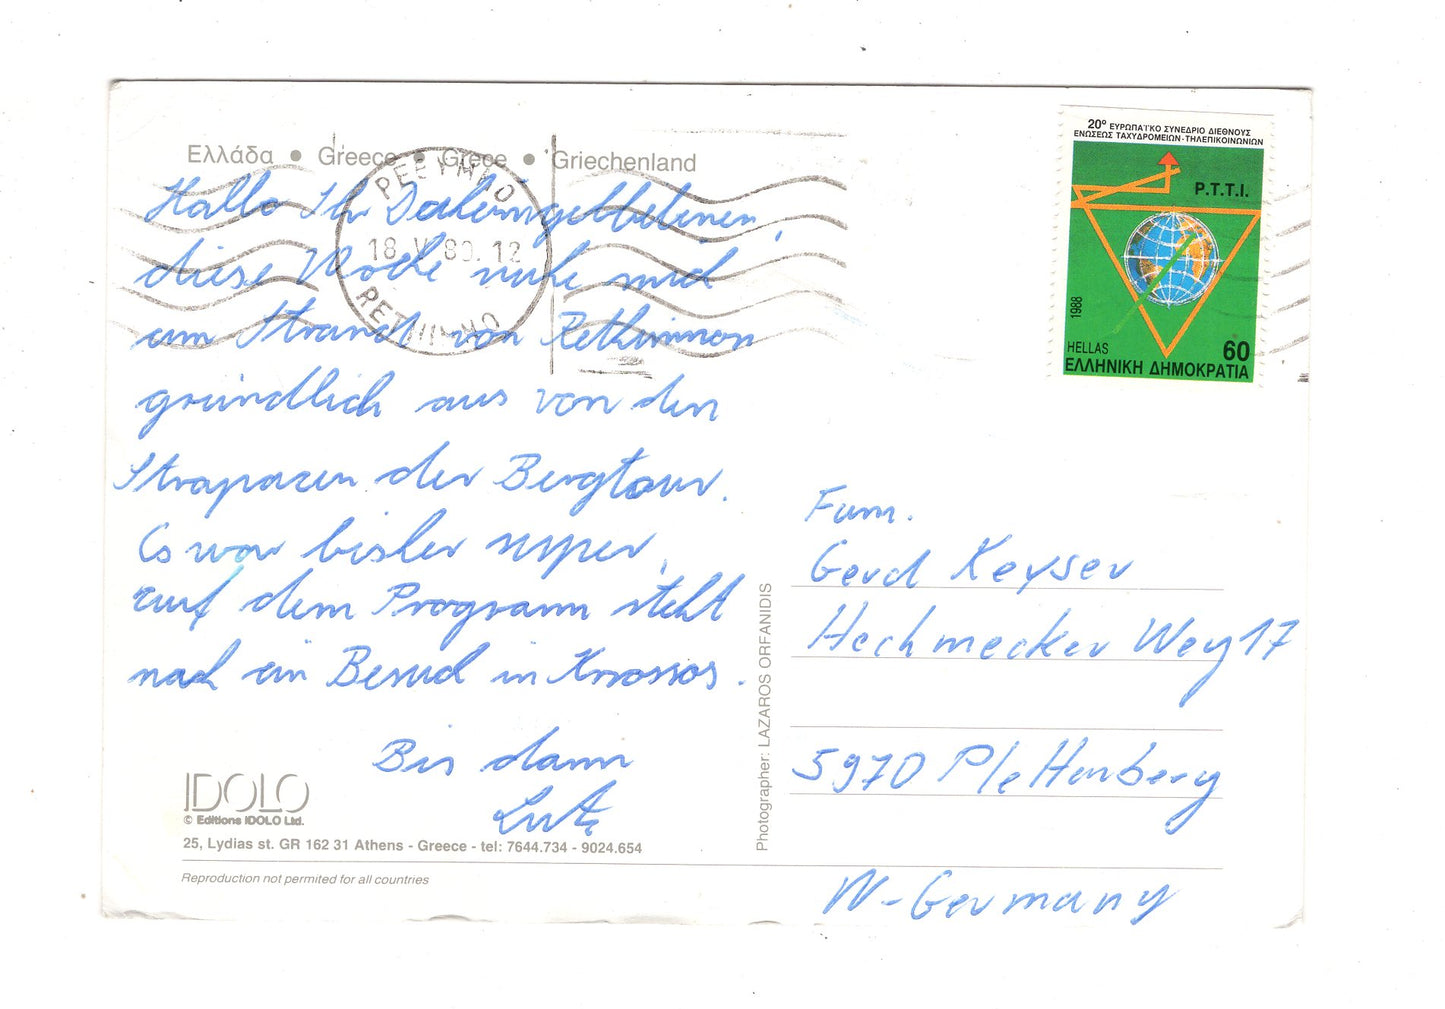 Ελλάδα • Greece • Grece • Griechenland
ΡΕΘΥΜΝΟ
18. V. 89. 12
RETHIMNO
20º ΕΥΡΩΠΑΪΚΟ ΣΥΝΕΔΡΙΟ ΔΙΕΘΝΟΥΣ
ΕΝΩΣΕΩΣ ΤΑΧΥΔΡΟΜΕΙΩΝ-ΤΗΛΕΠΙΚΟΙΝΩΝΙΩΝ
P.T.T.I.
1988
HELLAS 60
ΕΛΛΗΝΙΚΗ ΔΗΜΟΚΡΑΤΙΑ
Hallo Ihr Daheimgebliebenen,
diese Woche ruhe mich
am Strand von Rethimnon
gründlich aus von den
Strapazen der Bergtour.
Es war bisher super,
auf dem Programm steht
noch ein Besuch in Knossos.
Bis dann
Lutz
Fam.
Gerd Keyser
Hechmecker Weg 17
5970 Plettenberg
W-Germany
Photographer: LAZAROS ORFANIDIS
IDOLO
© Editions IDOLO Ltd.
25, Lydias st. GR 162 31 Athens - Greece - tel: 7644.734 - 9024.654
Reproduction not permited for all countries